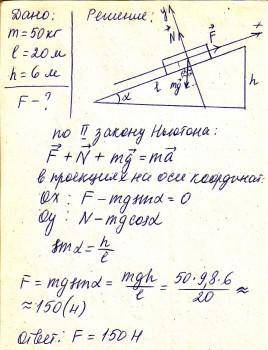 Дано:
m = 50 кг
l = 20 м
h = 6 м
F - ?
Решение:
y
x
N
F
l
mg
α
h
по II закону Ньютона:
F + N + mg = ma
в проекциях на оси координат:
Ox : F - mg sinα = 0
Oy : N - mg cosα
sinα = h/l
F = mg sinα = mgh/l = 50·9,8·6/20 ≈
≈ 150 (Н)
Ответ: F = 150 Н